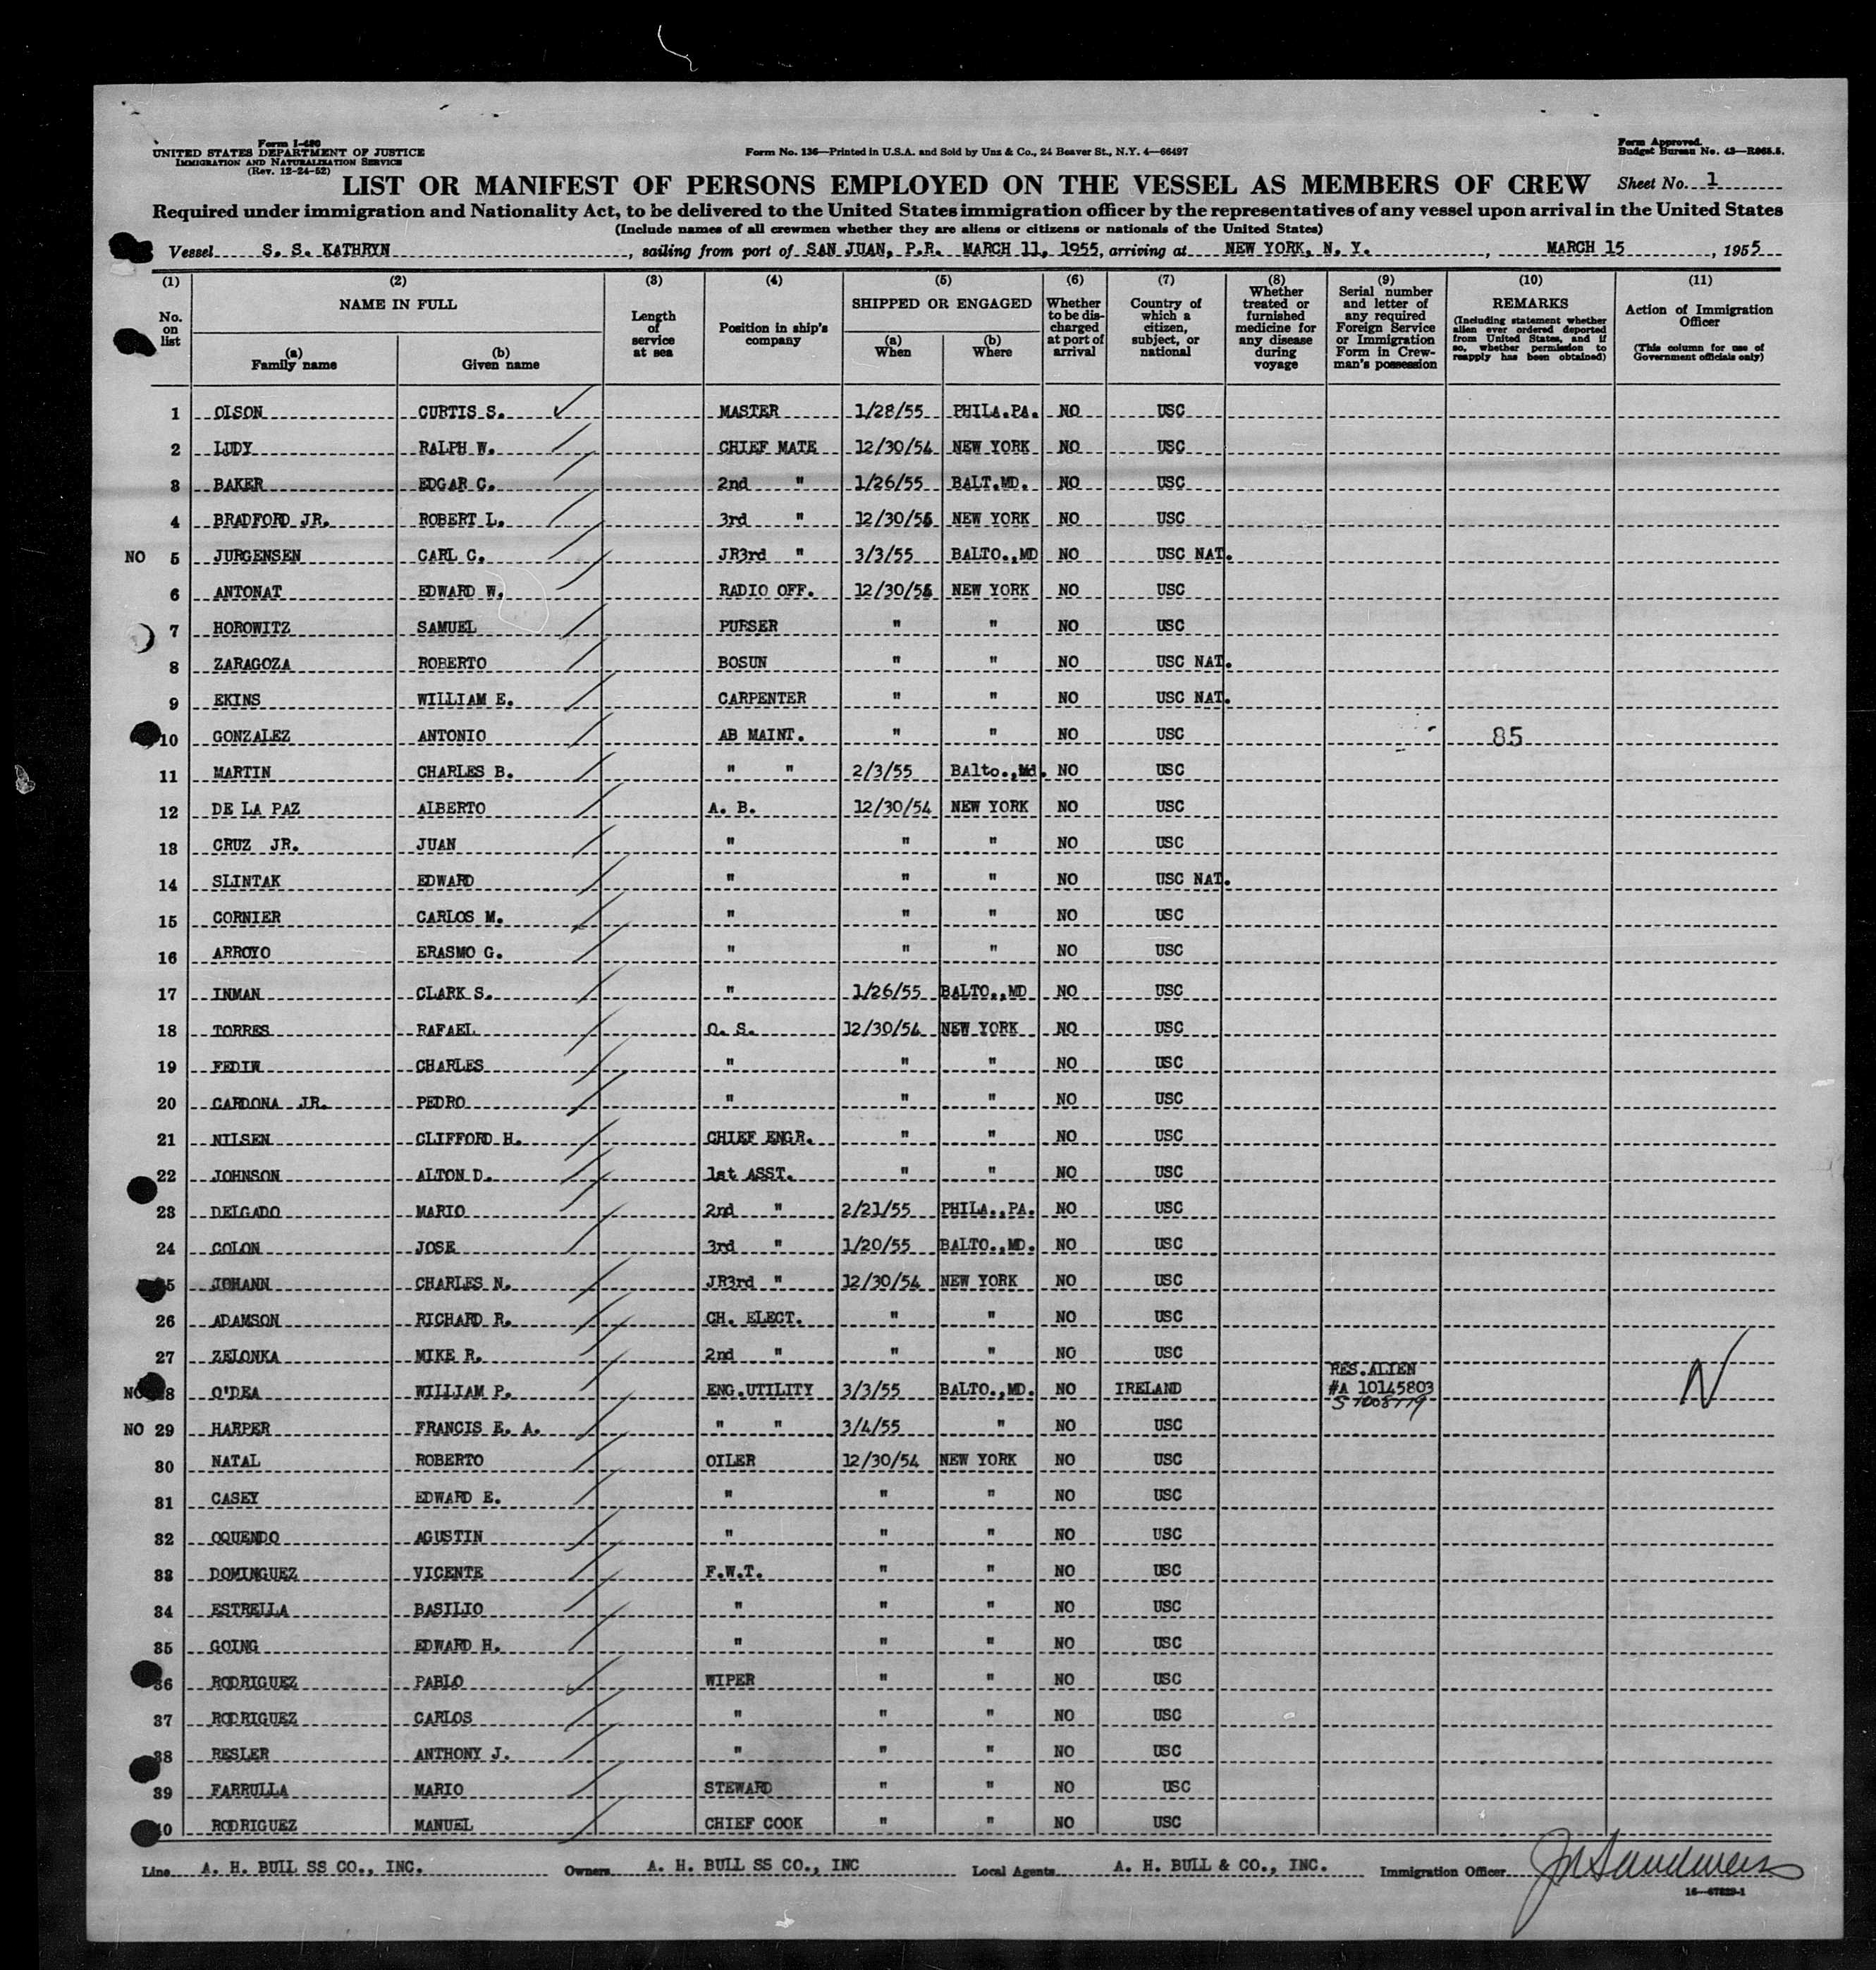 Form I-480
UNITED STATES DEPARTMENT OF JUSTICE
IMMIGRATION AND NATURALIZATION SERVICE
(Rev. 12-24-52)
Form No. 136—Printed in U.S.A. and Sold by Unz & Co., 24 Beaver St., N.Y. 4—66497
Form Approved.
Budget Bureau No. 43—R065.5.
LIST OR MANIFEST OF PERSONS EMPLOYED ON THE VESSEL AS MEMBERS OF CREW Sheet No. 1
Required under immigration and Nationality Act, to be delivered to the United States immigration officer by the representatives of any vessel upon arrival in the United States
(Include names of all crewmen whether they are aliens or citizens or nationals of the United States)
Vessel S. S. KATHRYN, sailing from port of SAN JUAN, P.R. MARCH 11, 1955, arriving at NEW YORK, N. Y., MARCH 15, 1955
(1) No. on list
(2) NAME IN FULL
(a) Family name
(b) Given name
(3) Length of service at sea
(4) Position in ship's company
(5) SHIPPED OR ENGAGED
(a) When
(b) Where
(6) Whether to be discharged at port of arrival
(7) Country of which a citizen, subject, or national
(8) Whether treated or furnished medicine for any disease during voyage
(9) Serial number and letter of any required Foreign Service or Immigration Form in Crewman's possession
(10) REMARKS (Including statement whether alien ever ordered deported from United States, and if so, whether permission to reapply has been obtained)
(11) Action of Immigration Officer (This column for use of Government officials only)
1 OLSON CURTIS S. MASTER 1/28/55 PHILA.PA. NO USC
2 LUDY RALPH W. CHIEF MATE 12/30/54 NEW YORK NO USC
3 BAKER EDGAR C. 2nd " 1/26/55 BALT.MD. NO USC
4 BRADFORD JR. ROBERT L. 3rd " 12/30/54 NEW YORK NO USC
NO 5 JURGENSEN CARL C. JR3rd " 3/3/55 BALTO.,MD NO USC NAT.
6 ANTONAT EDWARD W. RADIO OFF. 12/30/54 NEW YORK NO USC
7 HOROWITZ SAMUEL PURSER " " NO USC
8 ZARAGOZA ROBERTO BOSUN " " NO USC NAT.
9 EKINS WILLIAM E. CARPENTER " " NO USC NAT.
10 GONZALEZ ANTONIO AB MAINT. " " NO USC 85
11 MARTIN CHARLES B. " " 2/3/55 BAlto.,Md. NO USC
12 DE LA PAZ ALBERTO A. B. 12/30/54 NEW YORK NO USC
13 CRUZ JR. JUAN " " " NO USC
14 SLINTAK EDWARD " " " NO USC NAT.
15 CORNIER CARLOS M. " " " NO USC
16 ARROYO ERASMO G. " " " NO USC
17 INMAN CLARK S. " 1/26/55 BALTO.,MD NO USC
18 TORRES RAFAEL O. S. 12/30/54 NEW YORK NO USC
19 FEDIW CHARLES " " " NO USC
20 CARDONA JR. PEDRO " " " NO USC
21 NILSEN CLIFFORD H. CHIEF ENGR. " " NO USC
22 JOHNSON ALTON D. 1st ASST. " " NO USC
23 DELGADO MARIO 2nd " 2/21/55 PHILA.,PA. NO USC
24 COLON JOSE 3rd " 1/20/55 BALTO.,MD. NO USC
25 JOHANN CHARLES N. JR3rd " 12/30/54 NEW YORK NO USC
26 ADAMSON RICHARD R. CH. ELECT. " " NO USC
27 ZELONKA MIKE R. 2nd " " " NO USC
NO 28 O'DEA WILLIAM P. ENG.UTILITY 3/3/55 BALTO.,MD. NO IRELAND RES.ALIEN #A 10145803 N
NO 29 HARPER FRANCIS E. A. " " 3/4/55 " NO USC
30 NATAL ROBERTO OILER 12/30/54 NEW YORK NO USC
31 CASEY EDWARD E. " " " NO USC
32 OQUENDO AGUSTIN " " " NO USC
33 DOMINGUEZ VICENTE F.W.T. " " NO USC
34 ESTRELLA BASILIO " " " NO USC
35 GOING EDWARD H. " " " NO USC
36 RODRIGUEZ PABLO WIPER " " NO USC
37 RODRIGUEZ CARLOS " " " NO USC
38 RESLER ANTHONY J. " " " NO USC
39 FARRULLA MARIO STEWARD " " NO USC
40 RODRIGUEZ MANUEL CHIEF COOK " " NO USC
Line A. H. BULL SS CO., INC. Owners A. H. BULL SS CO., INC Local Agents A. H. BULL & CO., INC. Immigration Officer
16—67829-1